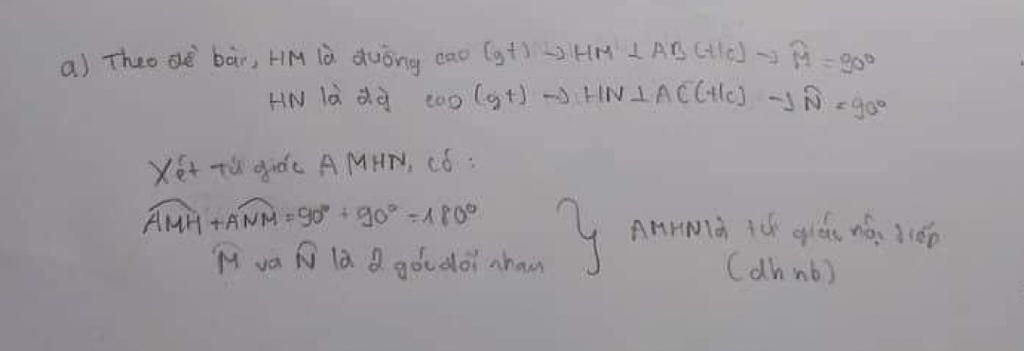 a) Theo đề bài, HM là đường cao (gt) → HM ⊥ AB (t/c) → M̂ = 90°
HN là đg cao (gt) → HN ⊥ AC (t/c) → N̂ = 90°
Xét tứ giác AMHN, có :
AMH + ANM = 90° + 90° = 180°
M̂ và N̂ là 2 góc đối nhau } AMHN là tứ giác nội tiếp
(dhnb)